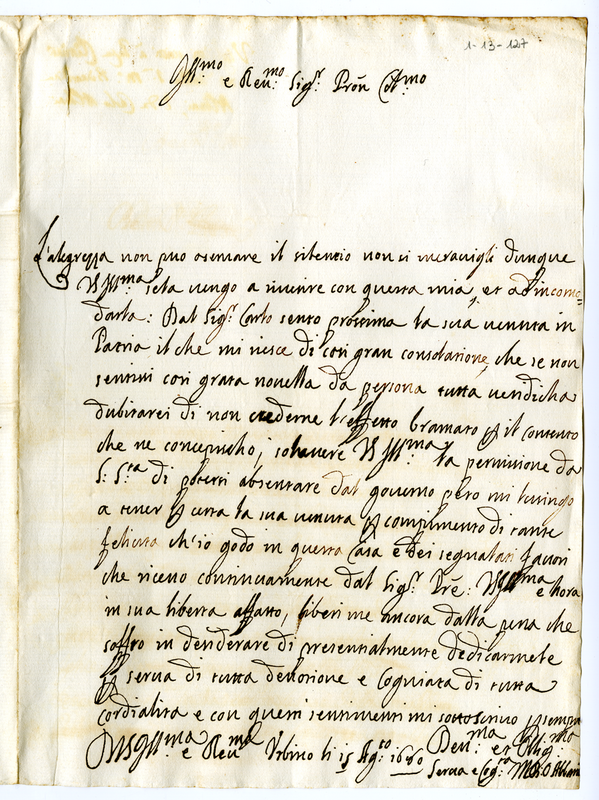 1-13-127
Ill.mo e Reu.mo Sig.r Prõn Col.mo
L'alegrezza non può osseruare il silentio non si merauigli dunque
VS Ill.ma se la uengo a riuerire con questa mia, et ad incomo=
darla: Dal Sig.r Carlo sento prossima la sua uenuta in
Patria il che mi riesce di così gran consolatione, che se non
sentissi così grata nouella da persona tutta ueridicha
dubitarei di non crederne l'effetto bramato p il contento
che ne concepischo, VS Ill.ma la permissione da
S: S.tà di potersi absentare dal gouerno però mi lusingo
a tener p certa la sua uenuta p compimento di tante
felicità ch'io godo in questa Casa e dei segnalati fauori
che riceuo continuamente dal Sig.r Prẽ: VS Ill.ma e hora
in sua libertà affatto, liberi me ancora dalla pena che
soffro in desiderare di presentialmente dedicarmele
p serua di tutta deuotione e Cogniata di tutta
Cordialità e con questi sentimenti mi sottoscriuo p sempre
Di VS Ill.ma e Reu.ma Vrbino li 15 Ag.to 1660 Deu.ma et Oblig.ma
Serua e Cog.ta